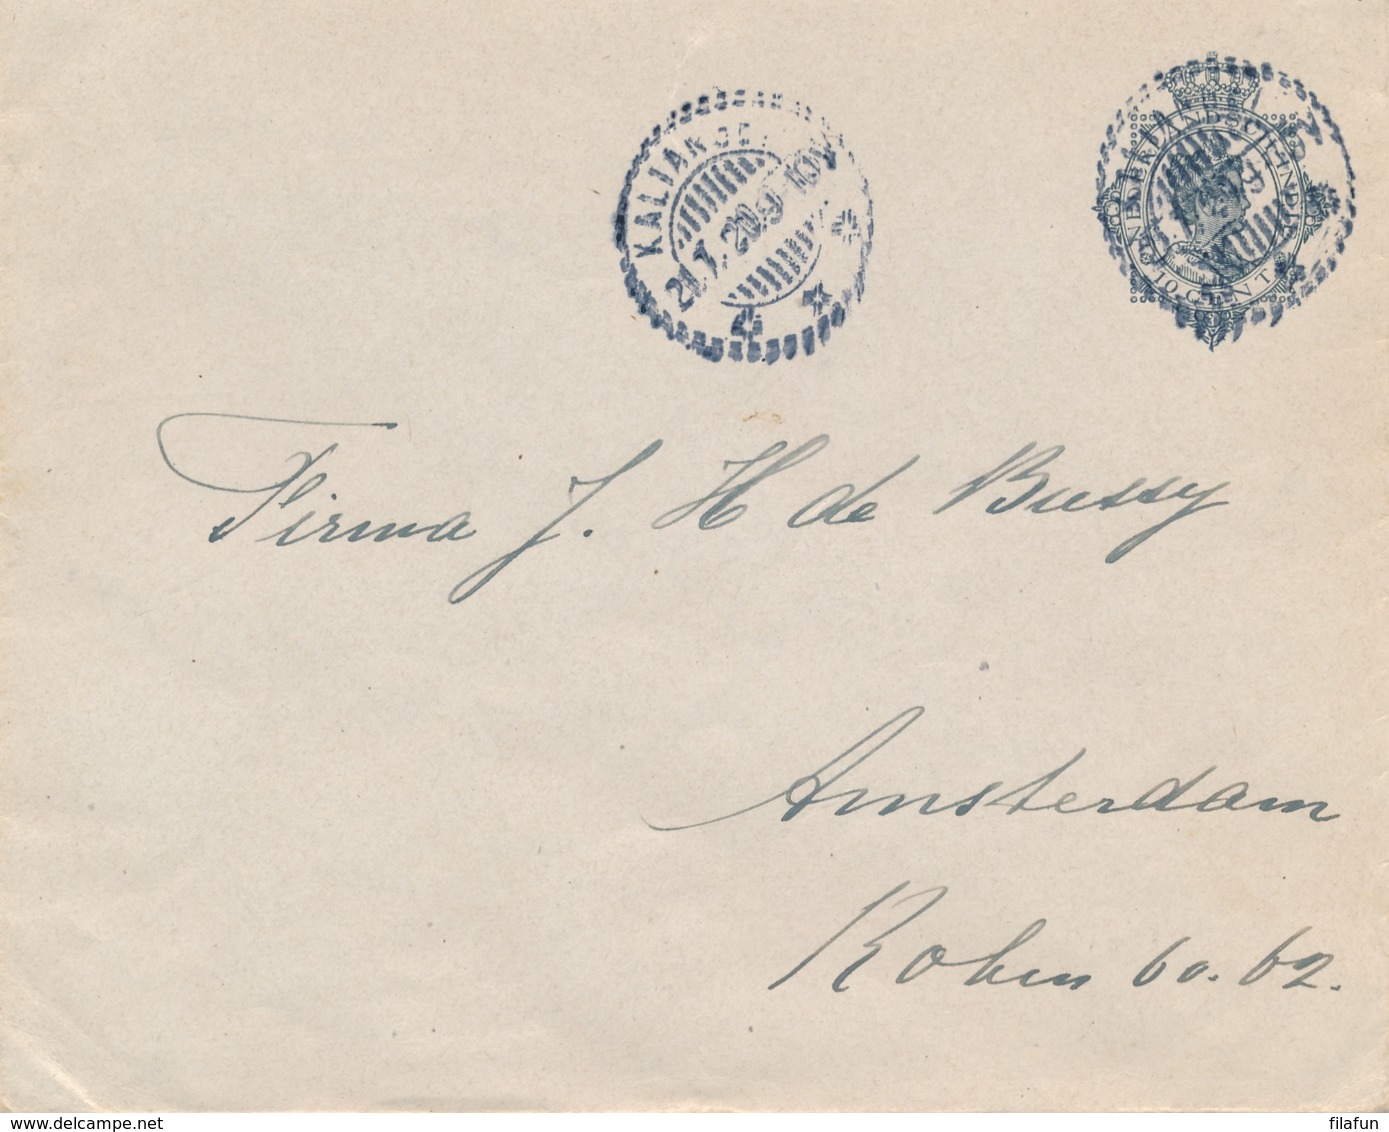 KALIANGET
21.1.20.9-10V
NEDERLANDSCH-INDIË
10 CENT
Firma J. H de Bussy
Amsterdam
Rokin 60.62.
www.delcampe.net
filafun